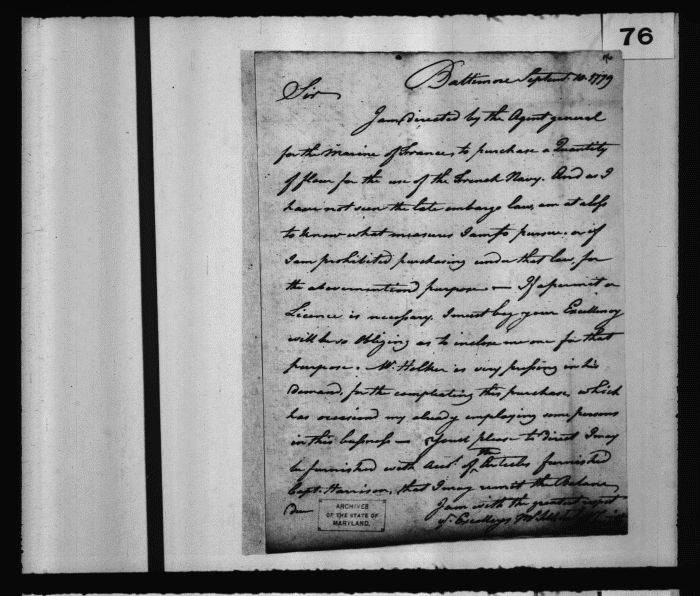 76
Baltimore Septem. 10. 1779
Sir
I am directed by the Agent general
for the Marine of France, to purchase a Quantity
of flour for the use of the French Navy. And as I
have not seen the late embargo law, am at a loss
to know what measures I am to pursue. or if
I am prohibited purchasing under that law, for
the abovementiond purpose — If a permit or
Licence is necessary, I must beg your Excellency
will be so Obliging as to inclose me one for that
purpose. Mr. Holker is very pressing in his
demand, for the compleating this purchase, which
has occasiond my already employing some persons
in this business — Youll please to direct I may
be furnished with Acct. of the Articles furnished
Capt. Harrison, that I may remit the Balance
Due
I am with the greatest respect
yr. Excellleys
ARCHIVES
OF THE STATE OF
MARYLAND.